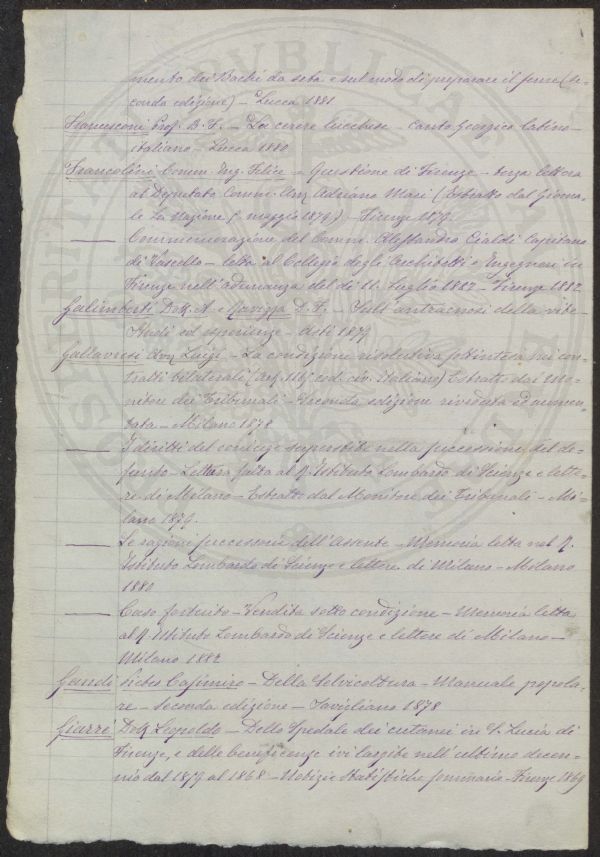 mento dei Bachi da seta e sul modo di preparare il seme (se-
conda edizione) – Lucca 1881
Francesconi Prof. B. F. – La cerere lucchese – Canto Georgico latino-
italiano – Lucca 1880
Francolini Comm. Ing. Felice – Questione di Firenze – terza lettera
al Deputato Comm. Avv. Adriano Mari (Estratto dal Giorna-
le La Nazione ( maggio 1879) – Firenze 1879.
—— Commemorazione del Comm. Alessandro Cialdi Capitano
di Vascello – letta al Collegio degli Architetti e Ingegneri in
Firenze nell'adunanza del dì 11. Luglio 1882 – Firenze 1882
Galimberti Dott. A. e Ravizza D. F. – Sull'antracnosi della vite –
Studi ed esperienze – Asti 1879
Gallavresi Avv. Luigi – La condizione risolutiva sottintesa nei con-
tratti bilaterali (art. 1165 cod. civ. italiano) Estratto dal Mo-
nitore dei Tribunali – Seconda edizione riveduta ed aumen-
tata – Milano 1878
—— I diritti del coniuge superstite nella successione del de-
funto – Lettura fatta al R. Istituto Lombardo di Scienze e lette-
re di Milano – Estratto dal Monitore dei Tribunali – Mi-
lano 1879.
—— Le ragioni successorie dell'Assente – Memoria letta nel R.
Istituto Lombardo di Scienze e lettere di Milano – Milano
1880
—— Caso fortuito – Vendita sotto condizione – Memoria letta
al R. Istituto Lombardo di Scienze e lettere di Milano –
Milano 1882
Gandi Casimiro – Della Selvicoltura – Manuale popola-
re – Seconda edizione – Savigliano 1878
Giarrè Dott. Leopoldo – Dello Spedale dei cutanei in S. Lucia di
Firenze, e delle beneficenze ivi largite nell'ultimo decen-
nio dal 1859 al 1868 – Notizie Statistiche sommarie – Firenze 1869